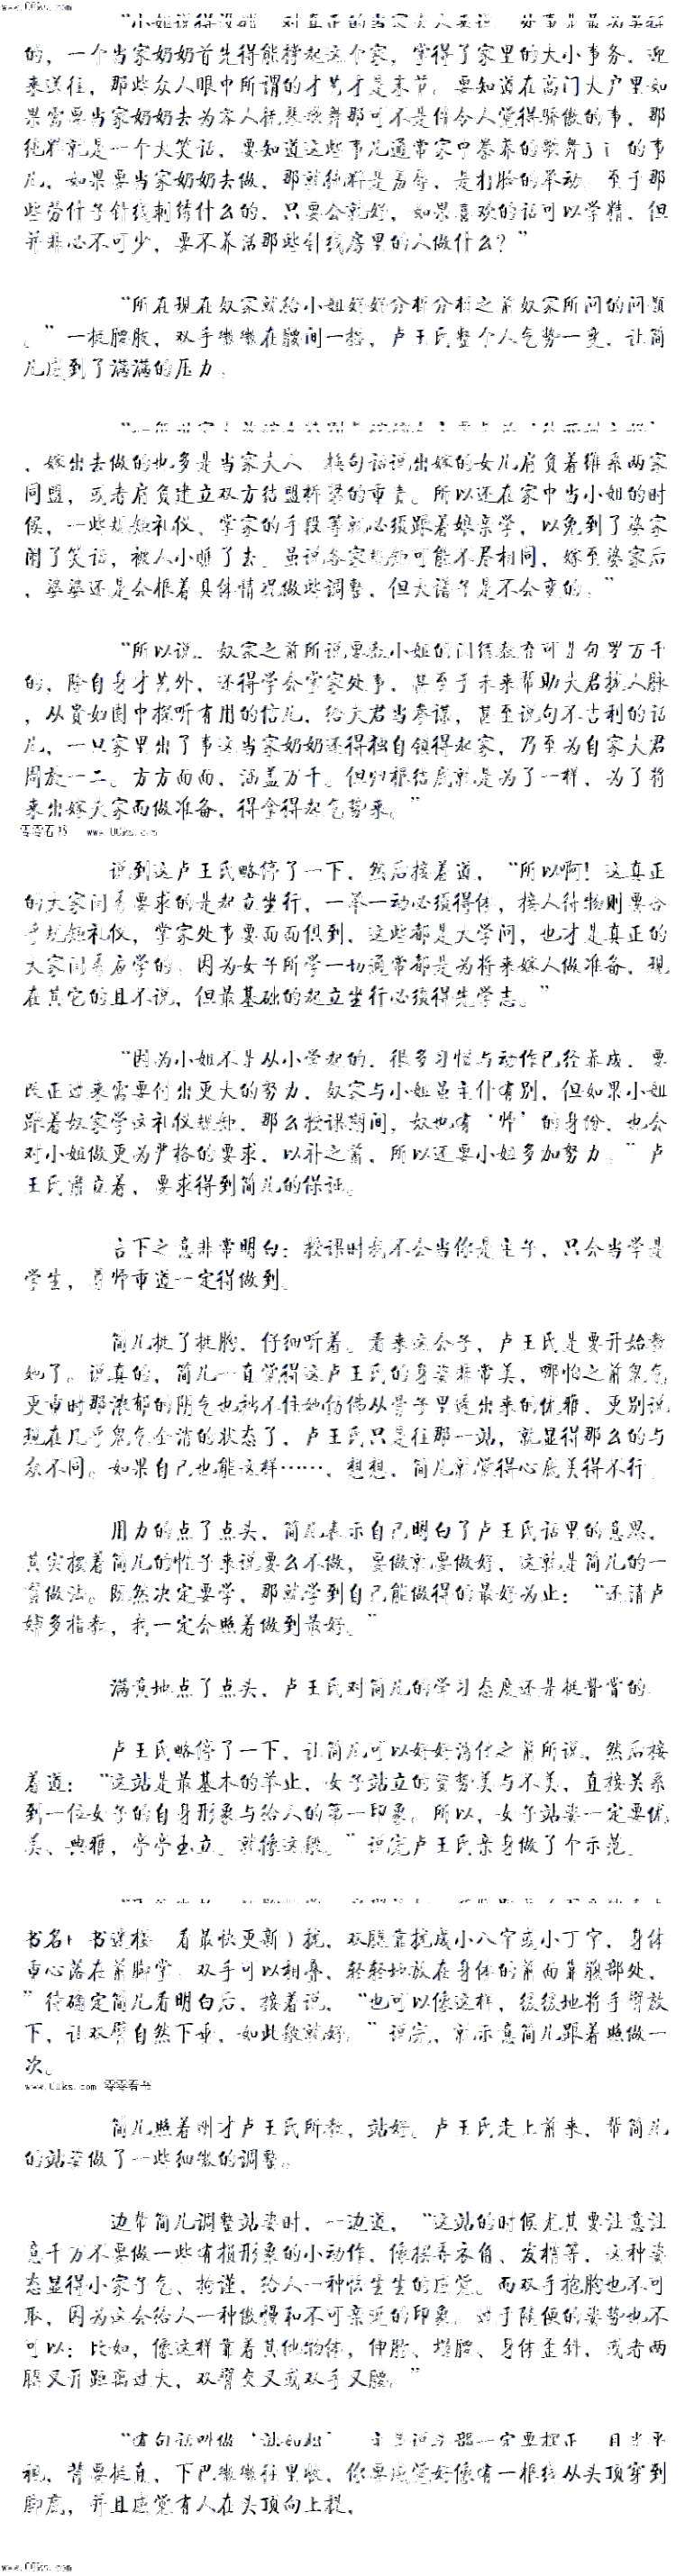 www.00ks.com
“小姐说得没错，对真正的当家夫人来说，处事是最为关键
的，一个当家奶奶首先得能撑起这个家，掌得了家里的大小事务、迎
来送往，那些众人眼中所谓的才艺才是末节。要知道在高门大户里如
果需要当家奶奶去为客人抚琴歌舞那可不是件令人觉得骄傲的事，那
纯粹就是一个大笑话，要知道这些事儿通常家中豢养的歌舞j i 的事
儿，如果要当家奶奶去做，那就纯粹是羞辱，是打脸的举动。至于那
些劳什子针线刺绣什么的，只要会就好，如果喜欢的话可以学精，但
并非必不可少，要不养活那些针线房里的人做什么？”
“所在现在奴家就给小姐好好分析分析之前奴家所问的问题
。”一挺腰肢，双手微微在腰间一搭，卢王氏整个人气势一变，让简
儿感到了满满的压力。
，嫁出去做的也多是当家夫人，换句话说出嫁的女儿肩负着维系两家
同盟，或者肩负建立双方结盟桥梁的重责。所以还在家中当小姐的时
候，一些规矩礼仪、掌家的手段等就必须跟着娘亲学，以免到了婆家
闹了笑话，被人小瞧了去。虽说各家规矩可能不尽相同，嫁至婆家后
，婆婆还是会根着具体情况做些调整，但大谱子是不会变的。”
“所以说，奴家之前所说要教小姐的闺绣教育可是包罗万千
的，除自身才艺外，还得学会掌家处事，甚至于未来帮助夫君找人脉
，从贵妇圈中探听有用的信儿，给夫君当参谋，甚至说句不吉利的话
儿，一旦家里出了事这当家奶奶还得独自领得起家，乃至为自家夫君
周旋一二。方方面面，涵盖万千。但归根结底就是为了一样，为了将
来出嫁夫家而做准备，得拿得起气势来。”
零零看书 www.00ks.com
说到这卢王氏略停了一下，然后接着道，“所以啊！这真正
的大家闺秀要求的是起立坐行，一举一动必须得体，接人待物则要合
乎规矩礼仪，掌家处事要面面俱到，这些都是大学问，也才是真正的
大家闺秀应学的。因为女子所学一切通常都是为将来嫁人做准备，现
在其它的且不说，但最基础的起立坐行必须得先学志。”
“因为小姐不是从小学起的，很多习惯与动作已经养成，要
反正过来需要付出更大的努力，奴家与小姐虽主仆有别，但如果小姐
跟着奴家学这礼仪规矩，那么授课期间，奴也有‘师’的身份，也会
对小姐做更为严格的要求，以补之前，所以还要小姐多加努力。”卢
王氏肃立着，要求得到简儿的保证。
言下之意非常明白：授课时我不会当你是主子，只会当学是
学生，尊师重道一定得做到。
简儿挺了挺胸，仔细听着。看来这会子，卢王氏是要开始教
她了。说真的，简儿一直觉得这卢王氏的身姿非常美，哪怕之前鬼气
更重时那浓郁的阴气也挡不住她仿佛从骨子里透出来的优雅，更别说
现在几乎鬼气全消的状态了，卢王氏只是往那一站，就显得那么的与
众不同。如果自己也能这样……，想想，简儿就觉得心底美得不行
用力的点了点头，简儿表示自己明白了卢王氏话里的意思，
其实按着简儿的性子来说要么不做，要做就要做好，这就是简儿的一
贯做法。既然决定要学，那就学到自己能做得的最好为止：“还请卢
婶多指教，我一定会照着做到最好。”
满意地点了点头，卢王氏对简儿的学习态度还是挺赞赏的。
卢王氏略停了一下，让简儿可以好好消化之前所说，然后接
着道：“这站是最基本的举止，女子站立的姿势美与不美，直接关系
到一位女子的自身形象与给人的第一印象。所以，女子站姿一定要优
美、典雅，亭亭玉立。就像这般。”说完卢王氏亲身做了个示范。
书名+ 书迷楼 看最快更新）拢，双腿靠拢成小八字或小丁字，身体
重心落在前脚掌，双手可以相叠，轻轻地放在身体的前面靠腹部处，
”待确定简儿看明白后，接着说，“也可以像这样，缓缓地将手臂放
下，让双臂自然下垂，如此般就好。”说完，就示意简儿跟着照做一
次。
www.00ks.com 零零看书
简儿照着刚才卢王氏所教，站好。卢王氏走上前来，帮简儿
的站姿做了一些细微的调整。
边帮简儿调整站姿时，一边道，“这站的时候尤其要注意注
意千万不要做一些有损形象的小动作，像摆弄衣角、发梢等，这种姿
态显得小家子气、拘谨，给人一种怯生生的感觉。而双手抱胸也不可
取，因为这会给人一种傲慢和不可亲近的印象。过于随便的姿势也不
可以：比如，像这样靠着其他物体，伸腿、塌腰、身体歪斜，或者两
腿叉开距离过大，双臂交叉或双手叉腰。”
视，背要挺直，下巴微微往里收，你要感觉好像有一根线从头顶穿到
脚底，并且感觉有人在头顶向上提，
www.00ks.com